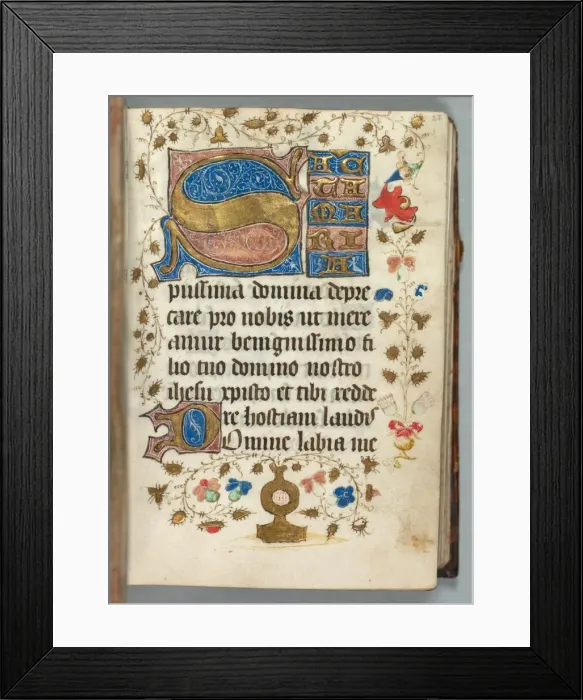 SAC
TA
MA
RI
A
piissima domina depre
care pro nobis ut mere
amur benignissimo fi
lio tuo domino nostro
ihesu xpisto et tibi redde
re hostiam laudis
DOmine labia me